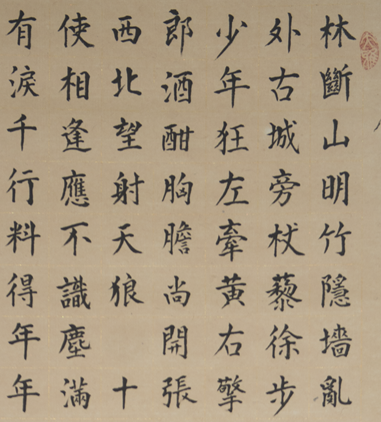 林斷山明竹隱墻亂
外古城旁杖藜徐步
少年狂左牽黃右擎
郎酒酣胸膽尚開張
西北望射天狼 十
使相逢應不識塵滿
有淚千行料得年年